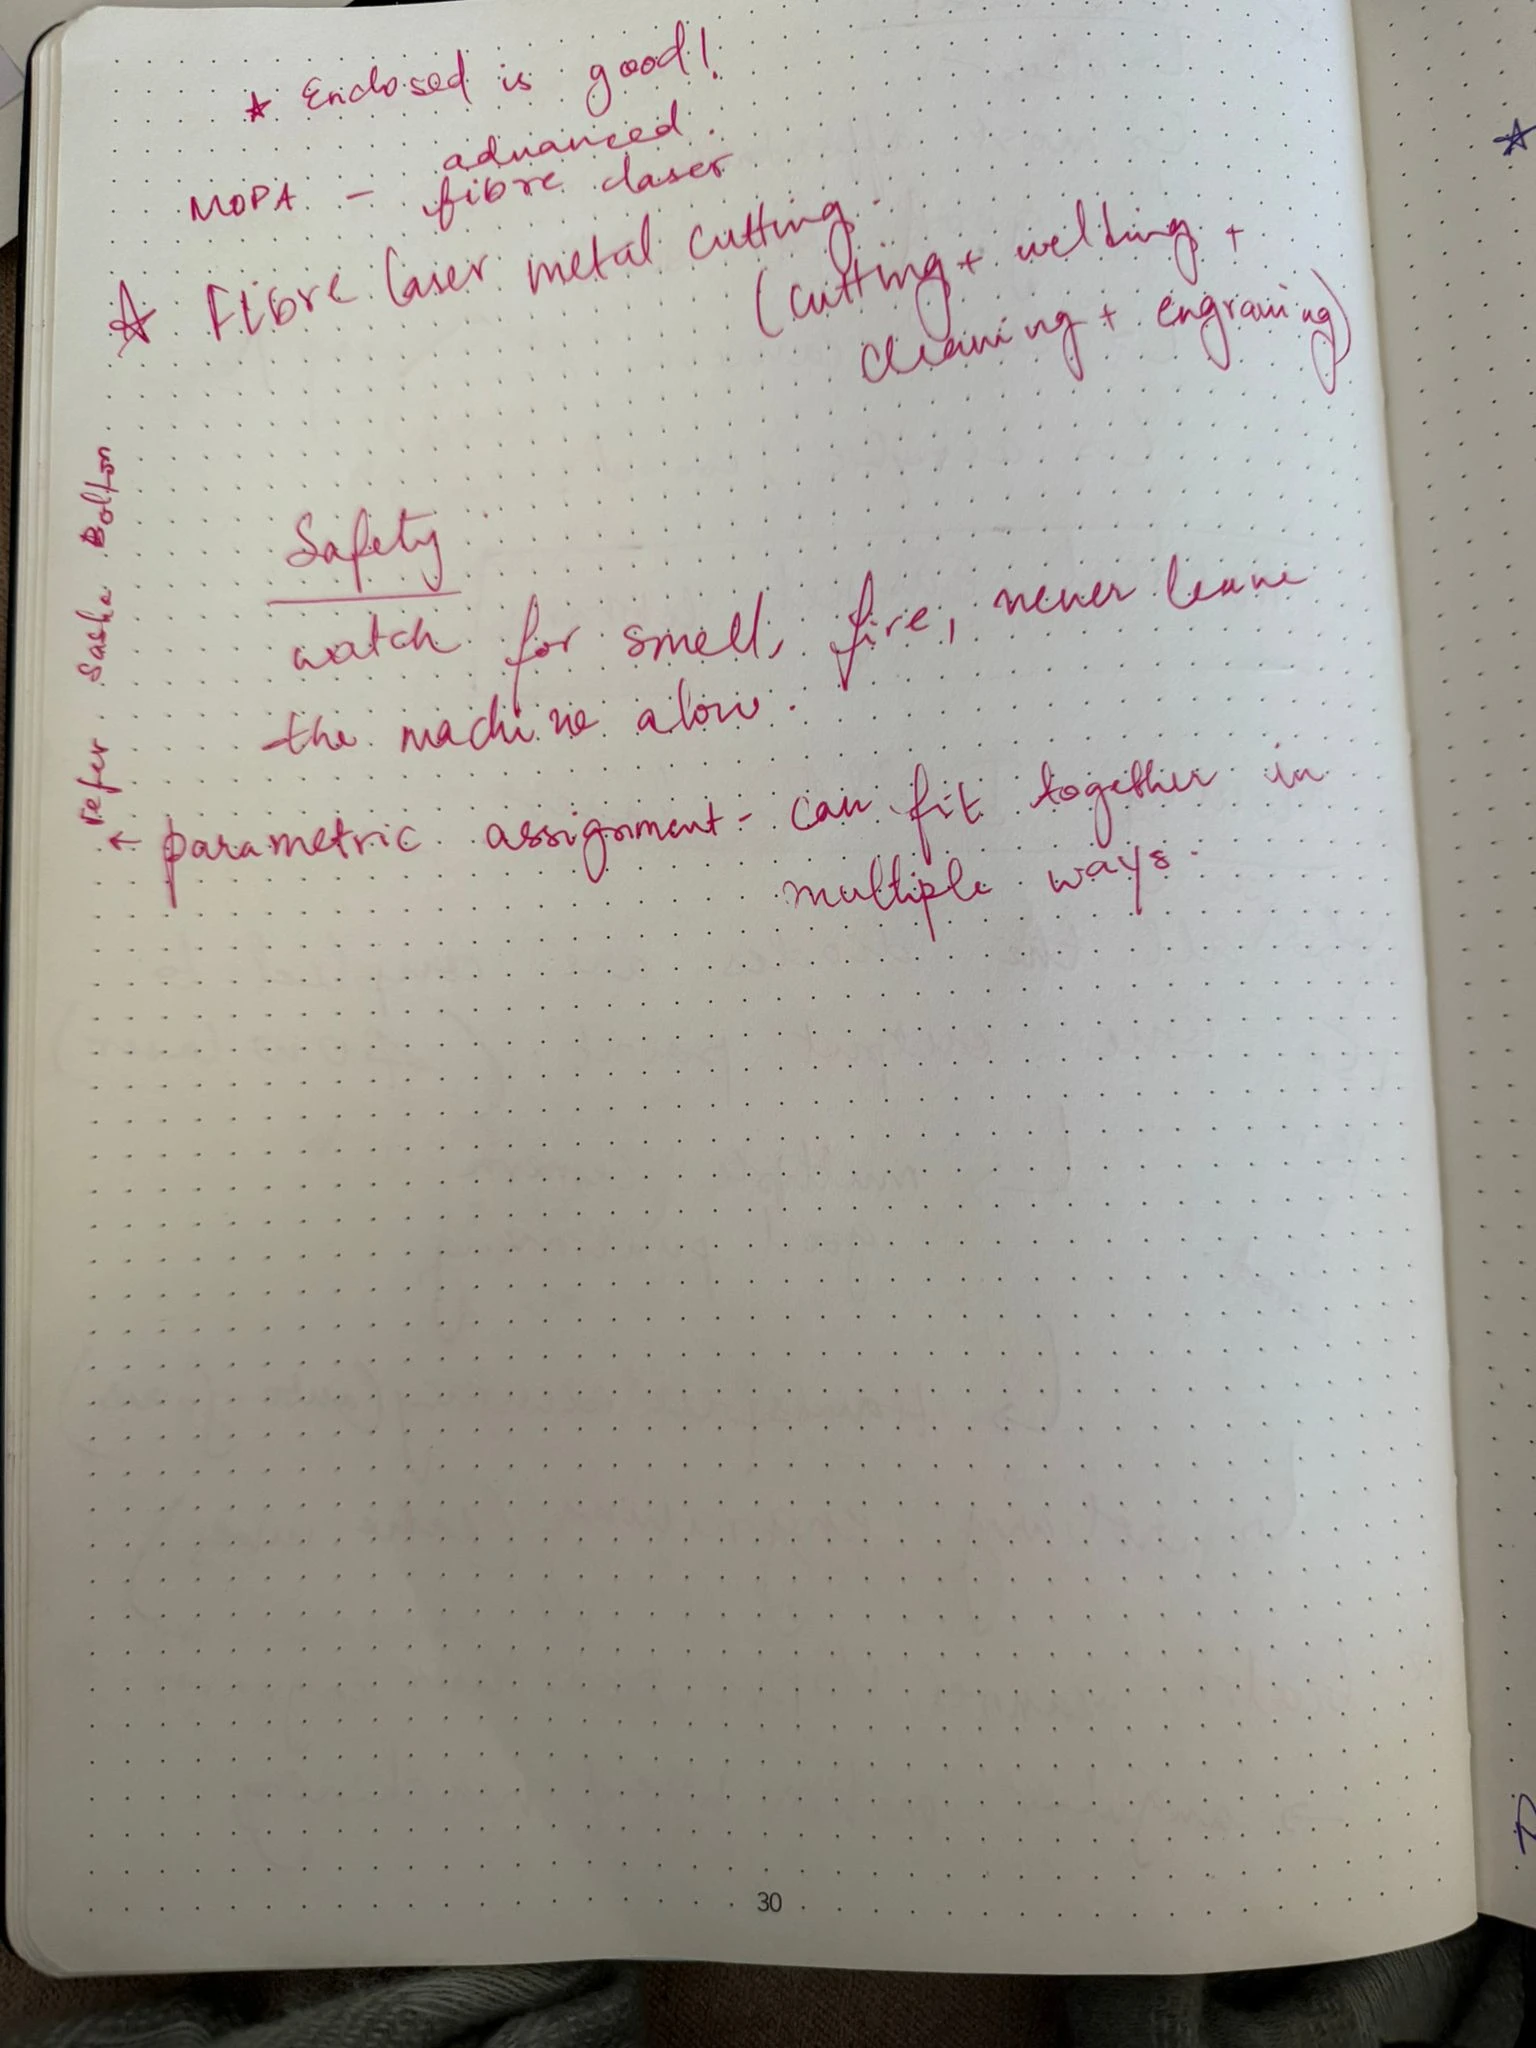 ☆ Enclosed is good!
advanced
MOPA – fibre laser
☆ Fibre laser metal cutting.
(cutting + welding +
cleaning + engraving)
Safety
watch for smell, fire, never leave
the machine alone.
← parametric assignment - can fit together in
multiple ways.
refer Sasha Bolton
30